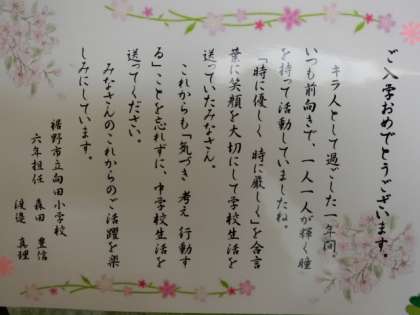 ご入学おめでとうございます。
キラ人として過ごした一年間、
いつも前向きで、一人一人が輝く瞳
を持って活動していましたね。
「時に優しく 時に厳しく」を合言
葉に笑顔を大切にして学校生活を
送っていたみなさん。
これからも「気づき 考え 行動す
る」ことを忘れずに、中学校生活を
送ってください。
みなさんのこれからのご活躍を楽
しみにしています。
裾野市立向田小学校
六年担任 森田 豊信
渡邉 真理